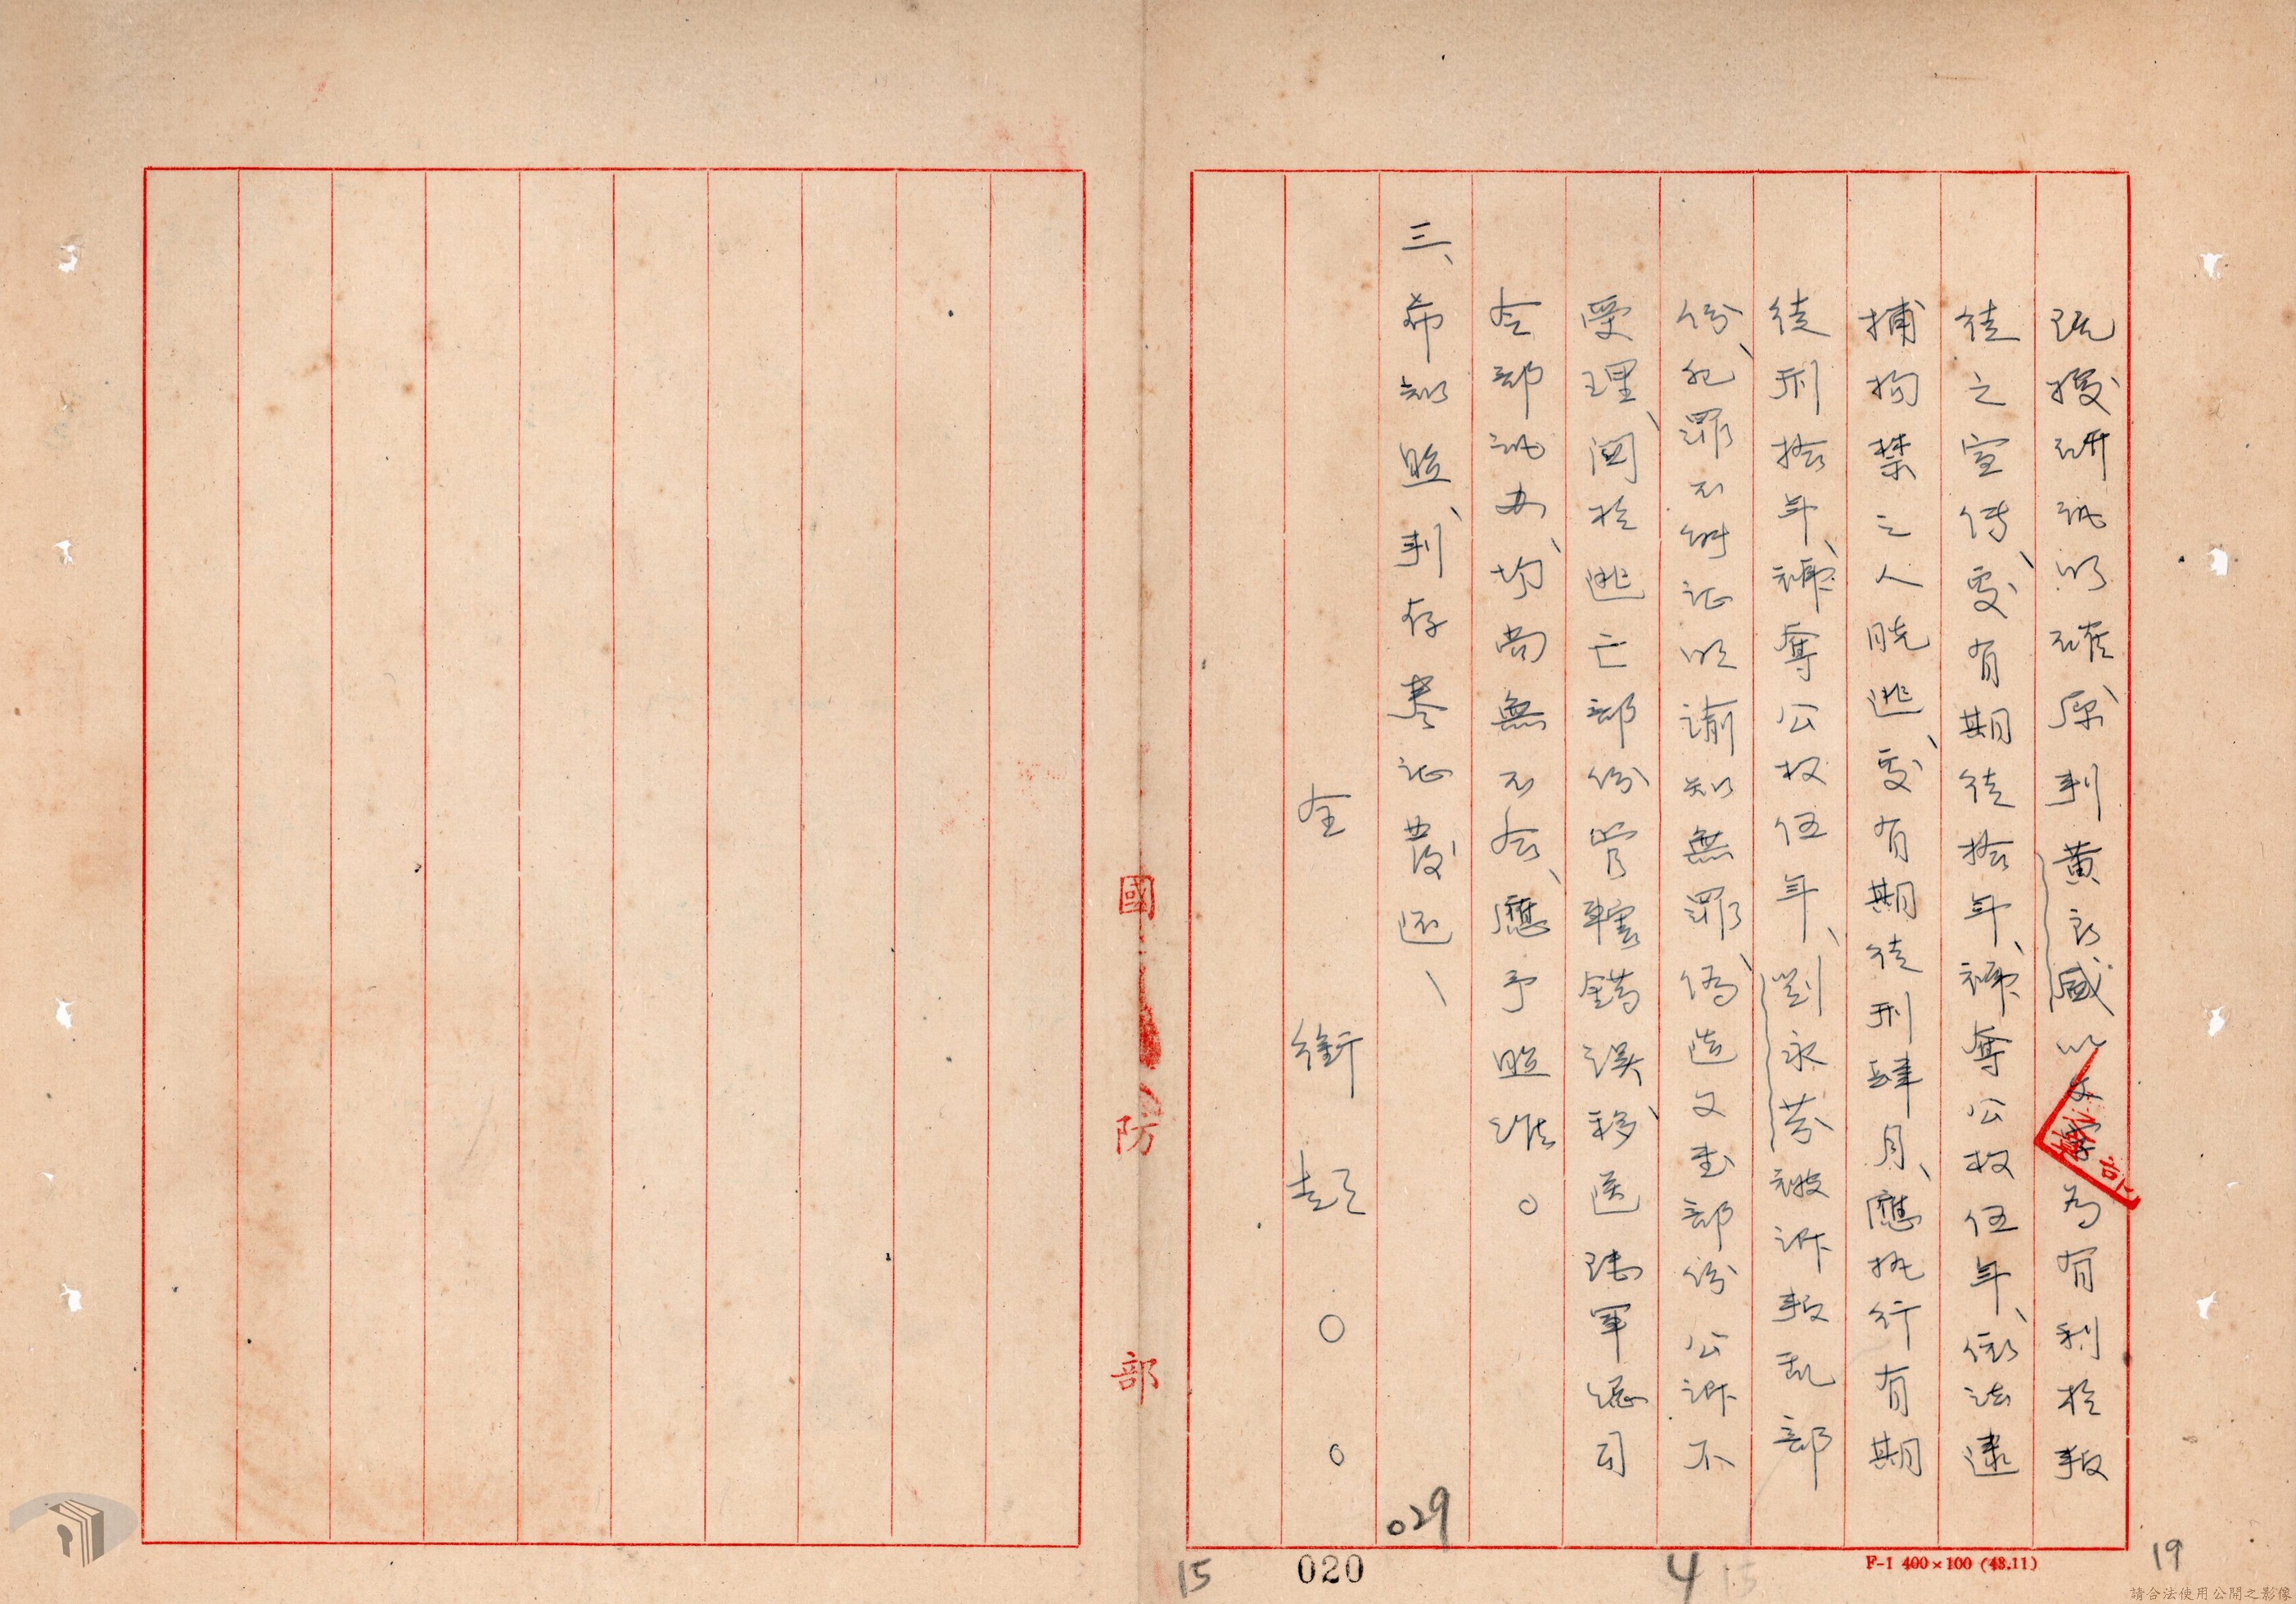 既據研訊明確、原判黃永盛以文字為有利於叛
徒之宣傳、處有期徒刑拾年、褫奪公权伍年、依法逮
捕拘禁之人脱逃、處有期徒刑肆月、應执行有期
徒刑拾年、褫奪公权伍年、劉永芬被訴叛乱部
份、犯罪不能证明諭知無罪、偽造文書部份公訴不
受理、関於逃亡部份管轄錯误、移送陸軍總司
令部讯办、均尚無不合、應予照准。
三、希知照、判存卷证發还、
全銜 ○ ○
029
國防部
15
020
4
15
F-1 400×100 (48.11)
19
請合法使用公開之影像